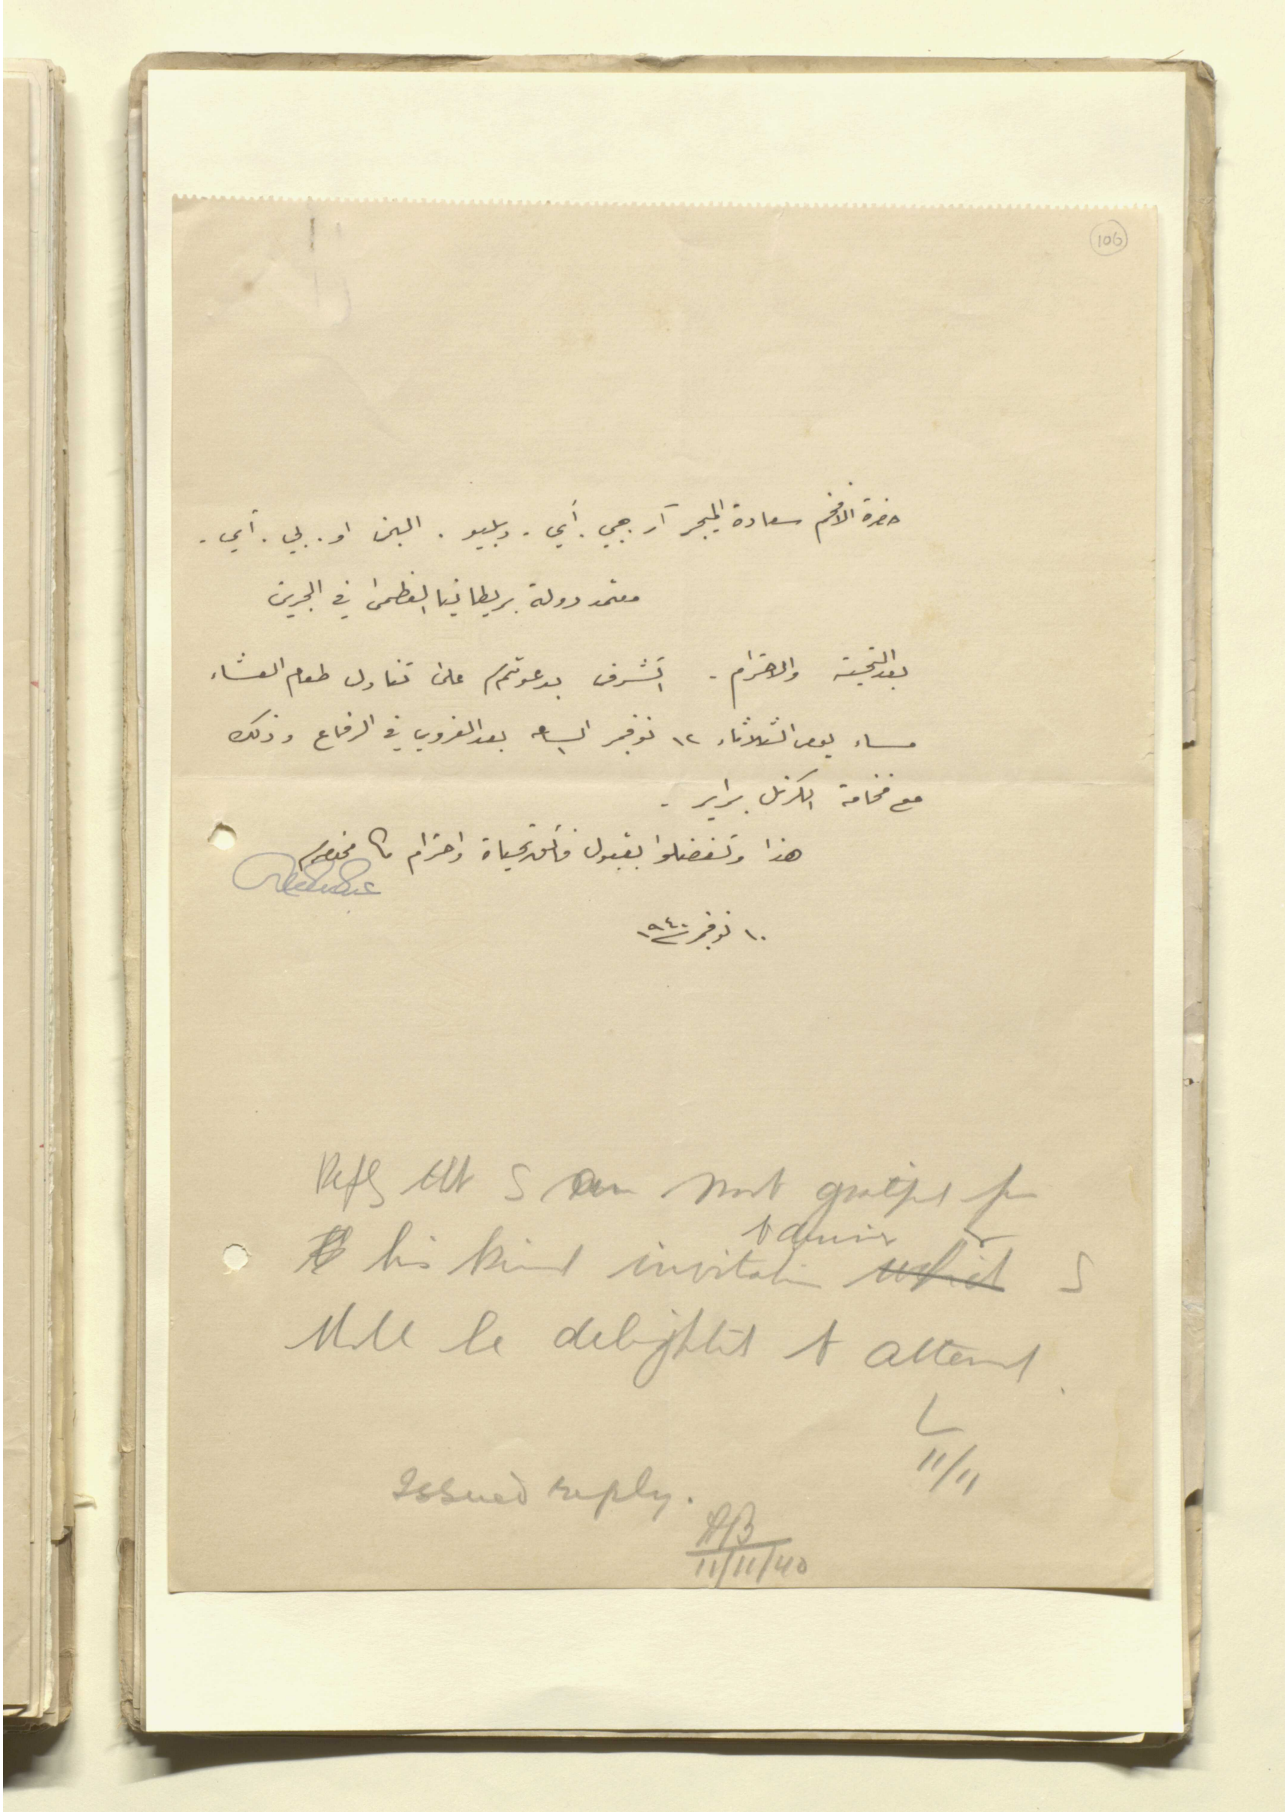 106
حضرة الافخم سعادة الميجر آر. جي. أي. دبليو. البن او. بي. أي.
معتمد دولة بريطانيا العظمى في البحرين
بعد التحية والاحترام. اتشرف بدعوتكم على تناول طعام العشاء
مساء يوم الثلاثاء ١٢ نوفمبر الساعه ١ بعد الغروب في الرفاع وذلك
مع فخامة الكرنل براير.
هذا وتفضلوا بقبول فائق تحياة واحترام مخلصكم
١٠ نوفمبر ١٩٤٠
Reply that I am most grateful for
his kind invitation to dinner which I
shall be delighted to attend.
L
11/11
Issued reply.
AB
11/11/40